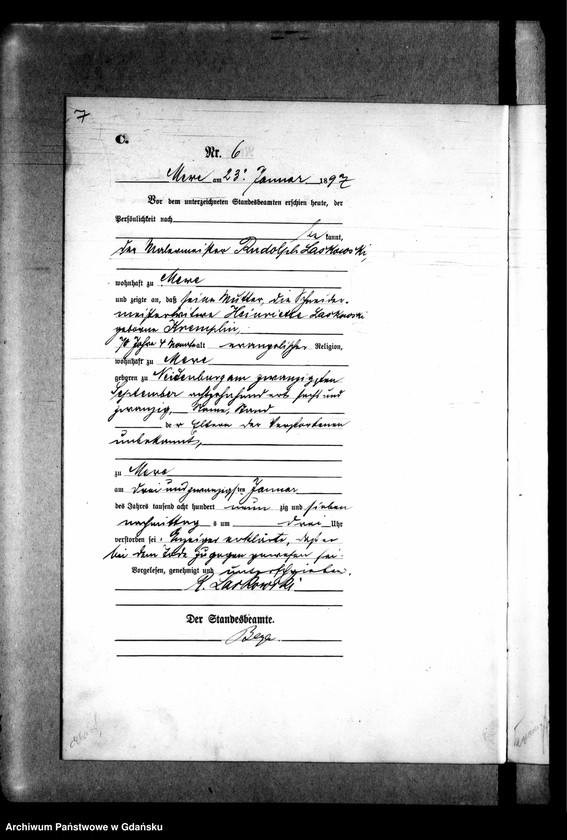 7
C.
Nr. 6
Mewe am 23. Januar 1897
Vor dem unterzeichneten Standesbeamten erschien heute, der
Persönlichkeit nach
be kannt,
der Malermeister Rudolph Laskowski,
wohnhaft zu Mewe
und zeigte an, daß seine Mutter, die Schneider-
meisterwitwe Henriette Laskowski
geborne Kremplin,
70 Jahre 4 Monate alt evangelischer Religion,
wohnhaft zu Mewe
geboren zu Neidenburg am zwanzigsten
September achtzehnhundert sechs und
zwanzig, Name, Stand
de r Eltern der Verstorbenen
unbekannt,
zu Mewe
am drei und zwanzigsten Januar
des Jahres tausend acht hundert neun zig und sieben
nachmittag s um drei Uhr
verstorben sei. Anzeiger erklärte, daß er
bei dem Tode zugegen gewesen sei.
Vorgelesen, genehmigt und unterschrieben.
R. Laskowski
Der Standesbeamte.
Archiwum Państwowe w Gdańsku